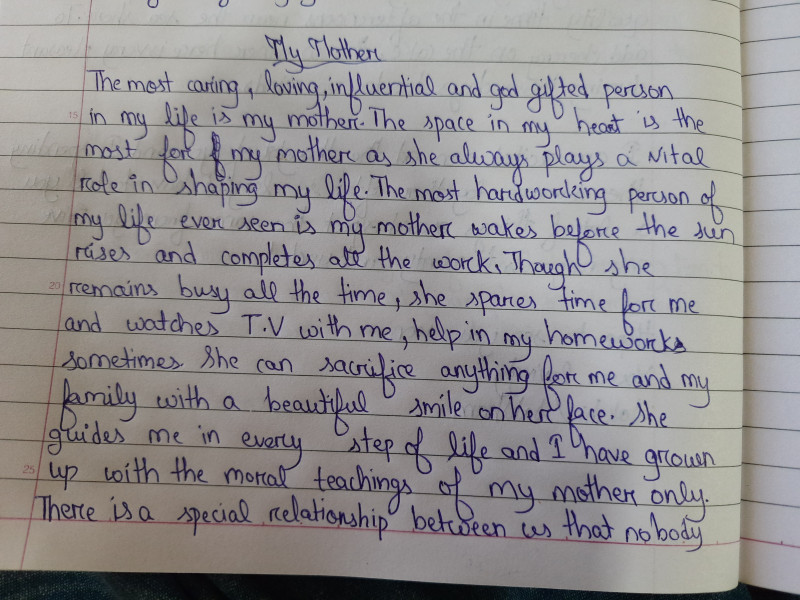 My Mother
The most caring, loving, influential and god gifted person
15 in my life is my mother. The space in my heart is the
most for my mother as she always plays a vital
role in shaping my life. The most hardworking person of
my life ever seen is my mother wakes before the sun
rises and completes all the work. Though she
20 remains busy all the time, she spares time for me
and watches T.V with me, help in my homeworks
sometimes. She can sacrifice anything for me and my
family with a beautiful smile on her face. She
guides me in every step of life and I have grown
25 up with the moral teachings of my mother only.
There is a special relationship between us that nobody